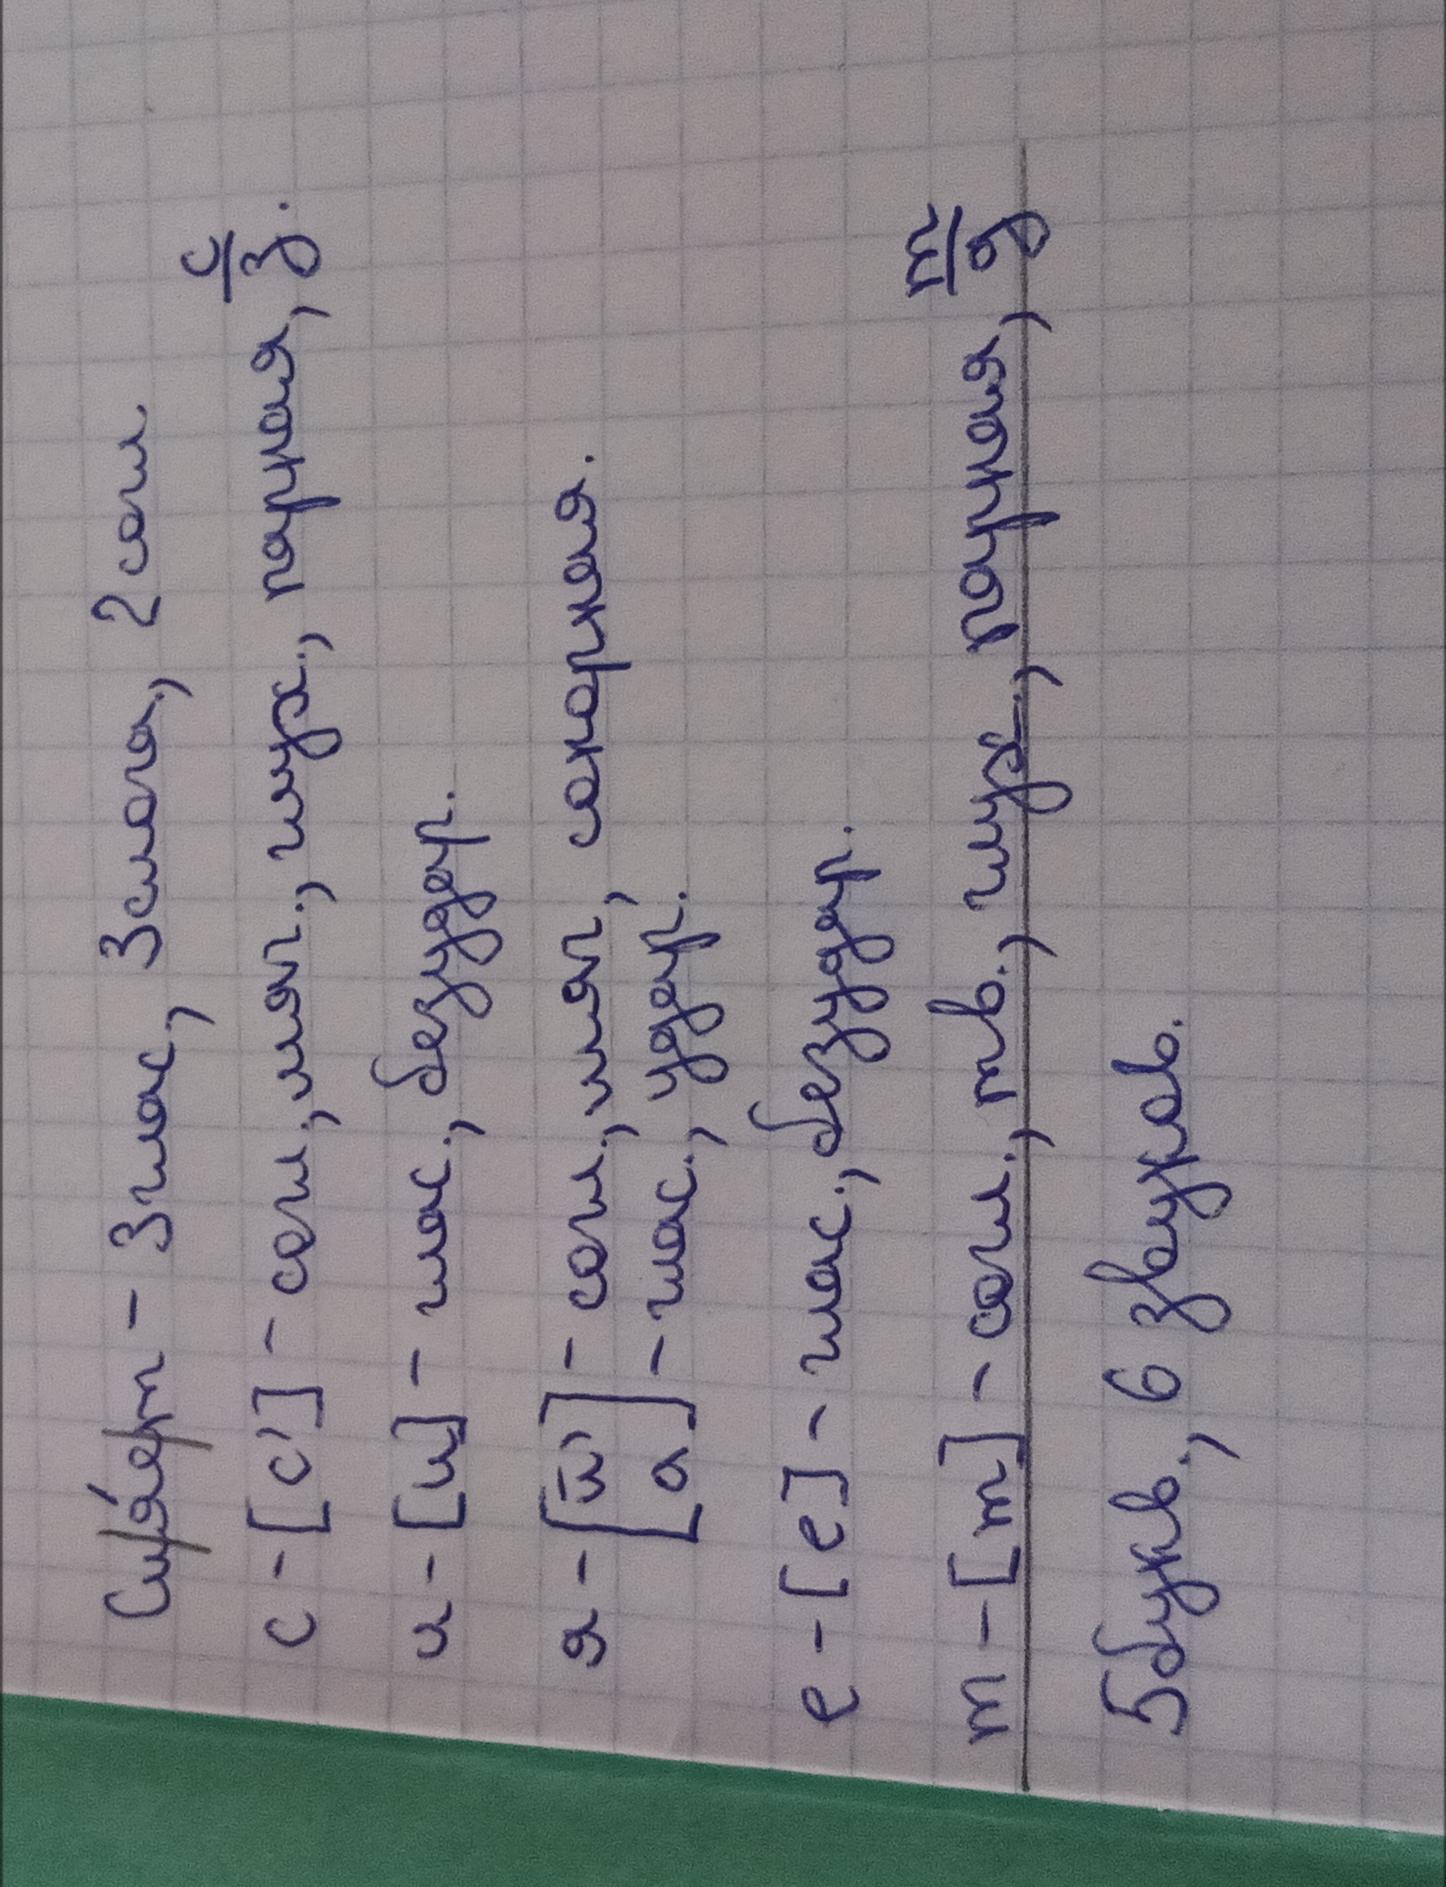 Сия́ет - 3 глас, 3 слога, 2 согл
с - [с'] - согл., мяг., глух., парная, с/з.
и - [и] - глас., безудар.
я - [й'] - согл., мяг, сонорная.
[а] - глас., удар.
е - [е] - глас., безудар.
т - [т] - согл., тв., глух., парная, т/д
5 букв., 6 звуков.